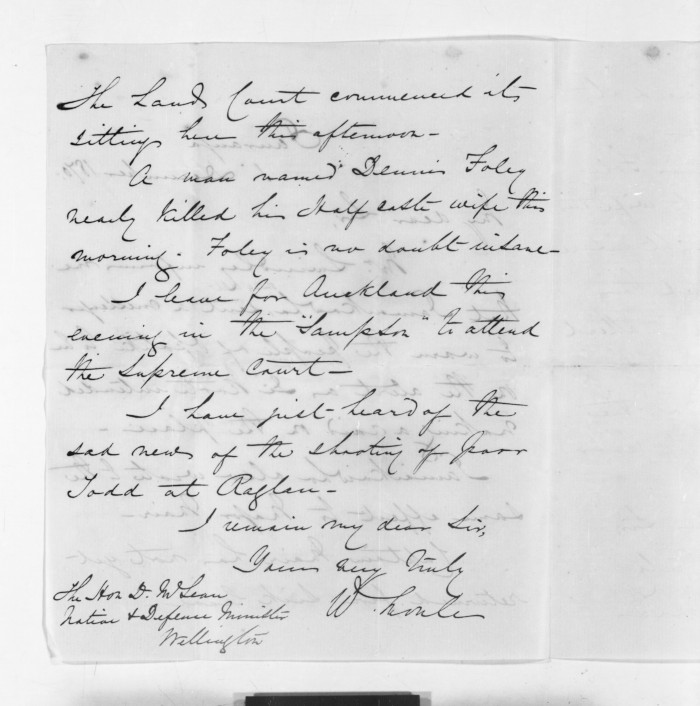 The Lands Court commenced its
sitting here this afternoon –
A man named Dennis Foley
nearly killed his Half caste wife this
morning. Foley is no doubt insane –
I leave for Auckland this
evening in the "Sampson" to attend
the Supreme Court –
I have just heard of the
sad news of the shooting of poor
Todd at Raglan –
I remain my dear Sir,
Yours very truly
W.
The Hon D. McLean
Native & Defence Minister
Wellington